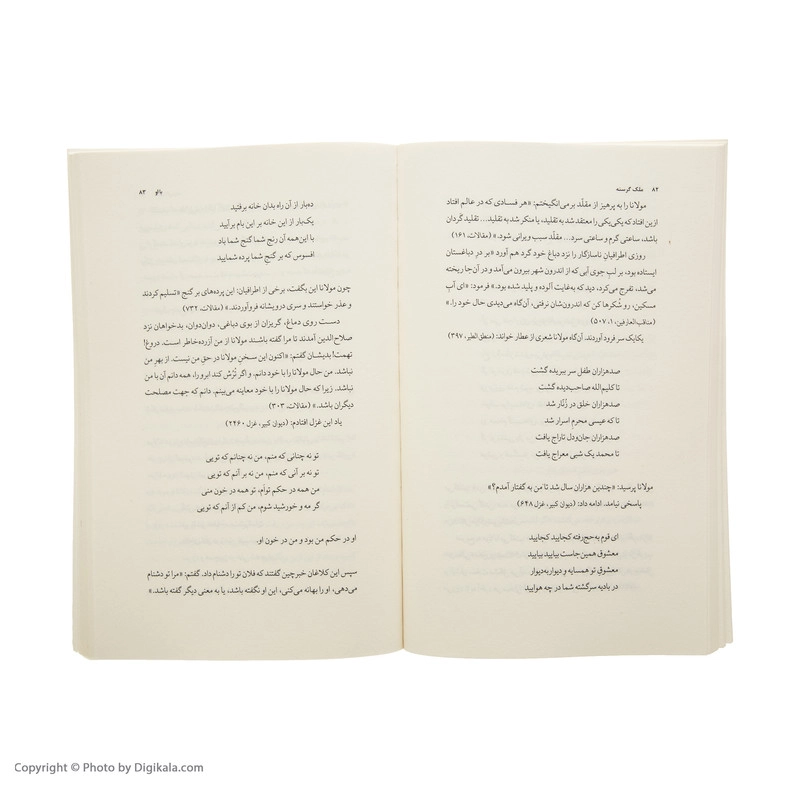 ۸۲ ملک گرسنه
مولانا را به پرهیز از مقلّد برمی‌انگیختم: «هر فسادی که در عالم افتاد
ازین افتاد که یکی یکی را معتقد شد به تقلید، یا منکر شد به تقلید... تقلید گردان
باشد، ساعتی گرم و ساعتی سرد... مقلّد سبب ویرانی شود.» (مقالات، ۱۶۱)
روزی اطرافیانِ ناسازگار را نزد دباغِ خود گرد هم آورد «بر درِ دباغستان
ایستاده بود، بر لبِ جوی آبی که از اندرون شهر بیرون می‌آمد و در آن‌جا ریخته
می‌شد، تفرج می‌کرد، دید که به‌غایت آلوده و پلید شده بود.» فرمود: «ای آبِ
مسکین، رو شُکرها کن که اندرون‌شان نرفتی، آن‌گاه می‌دیدی حال خود را.»
(مناقب‌العارفین، ۱، ۵۰۷)
یکایک سر فرود آوردند. آن‌گاه مولانا شعری از عطار خواند: (منطق‌الطیر، ۳۹۷)
صدهزاران طفلِ سر ببریده گشت
تا کلیم‌الله صاحب‌دیده گشت
صدهزاران خلق در زُنّار شد
تا که عیسی محرمِ اسرار شد
صدهزاران جان‌ودل تاراج یافت
تا محمد یک شبی معراج یافت
مولانا پرسید: «چندین هزاران سال شد تا من به گفتار آمدم؟»
پاسخی نیامد. ادامه داد: (دیوان کبیر، غزل ۶۴۸)
ای قوم به‌حج‌رفته کجایید کجایید
معشوق همین‌جاست بیایید بیایید
معشوقِ تو همسایه و دیواربه‌دیوار
در بادیه سرگشته شما در چه هوایید
۸۳
ده‌بار از آن راه بدان خانه برفتید
یک‌بار از این خانه بر این بام برآیید
با این‌همه آن رنجِ شما گنجِ شما باد
افسوس که بر گنجِ شما پرده شمایید
چون مولانا این بگفت، برخی از اطرافیان: این پرده‌های بر گنج «تسلیم کردند
و عذر خواستند و سری درویشانه فروآوردند.» (مقالات، ۷۳۲)
دست روی دماغ، گریزان از بوی دباغی، دوان‌دوان، بدخواهان نزد
صلاح‌الدین آمدند تا مرا گفته باشند مولانا از من آزرده‌خاطر است. دروغ!
تهمت! بدیشان گفتم: «اکنون این سخنِ مولانا در حقِ من نیست. از بهرِ من
نباشد. من حال مولانا را با خود دانم، و اگر تُرُش کند ابرو را، همه دانم آن با من
نباشد. زیرا که حال مولانا را با خود معاینه می‌بینم. دانم که جهت مصلحت
دیگران باشد.» (مقالات، ۳۰۳)
یاد این غزل افتادم: (دیوان کبیر، غزل ۲۴۶۰)
تو نه چنانی که منم، من نه چنانم که تویی
تو نه بر آنی که منم، من نه بر آنم که تویی
من همه در حکم توأم، تو همه در خون منی
گر مه و خورشید شوم، من کم از آنم که تویی
او در حکمِ من بود و من در خون او.
سپس این کلاغانِ خبرچین گفتند که فلان تو را دشنام داد. گفتم: «مرا تو دشنام
می‌دهی، او را بهانه می‌کنی، این او نگفته باشد، یا به معنی دیگر گفته باشد.»
Copyright © Photo by Digikala.com